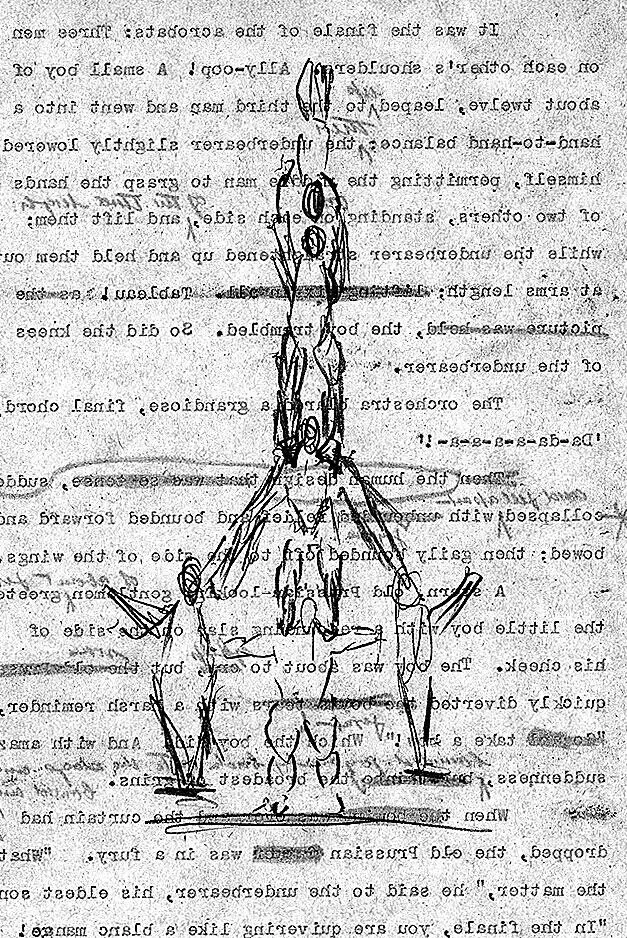 It was the finale of the acrobats: Three men
on each other's shoulders. Ally-oop! A small boy of
about twelve, leaped to the third man and went into a
then
hand-to-hand balance; the underbearer slightly lowered
himself, permitting the middle man to grasp the hands
of two others, standing on each side, and lift them;
while the underbearer straightened up and held them ou
at arms length; lifting six in all. Tableau! as the
picture was held, the boy trembled. So did the knees
of the underbearer.
The orchestra blared a grandiose, final chord,
'Da-da-a-a-a-a-!'
Then the human design that was so tense, sudde
collapsed with and bounded forward and
bowed; then gaily bounded off to the side of the wings.
A stern, old Prussian-looking gentleman greete
the little boy with a resounding slap on the side of
his cheek. The boy was about to cry, but the old
quickly diverted the boy's tears with a harsh reminder,
take a bow!" Which the boy did. And with amaz
suddenness, the broadest of grins.
When the the curtain had
dropped, the old Prussian was in a fury. "What
the matter," he said to the underbearer, his eldest son
"In the finale, you are quivering like a blanc mange!